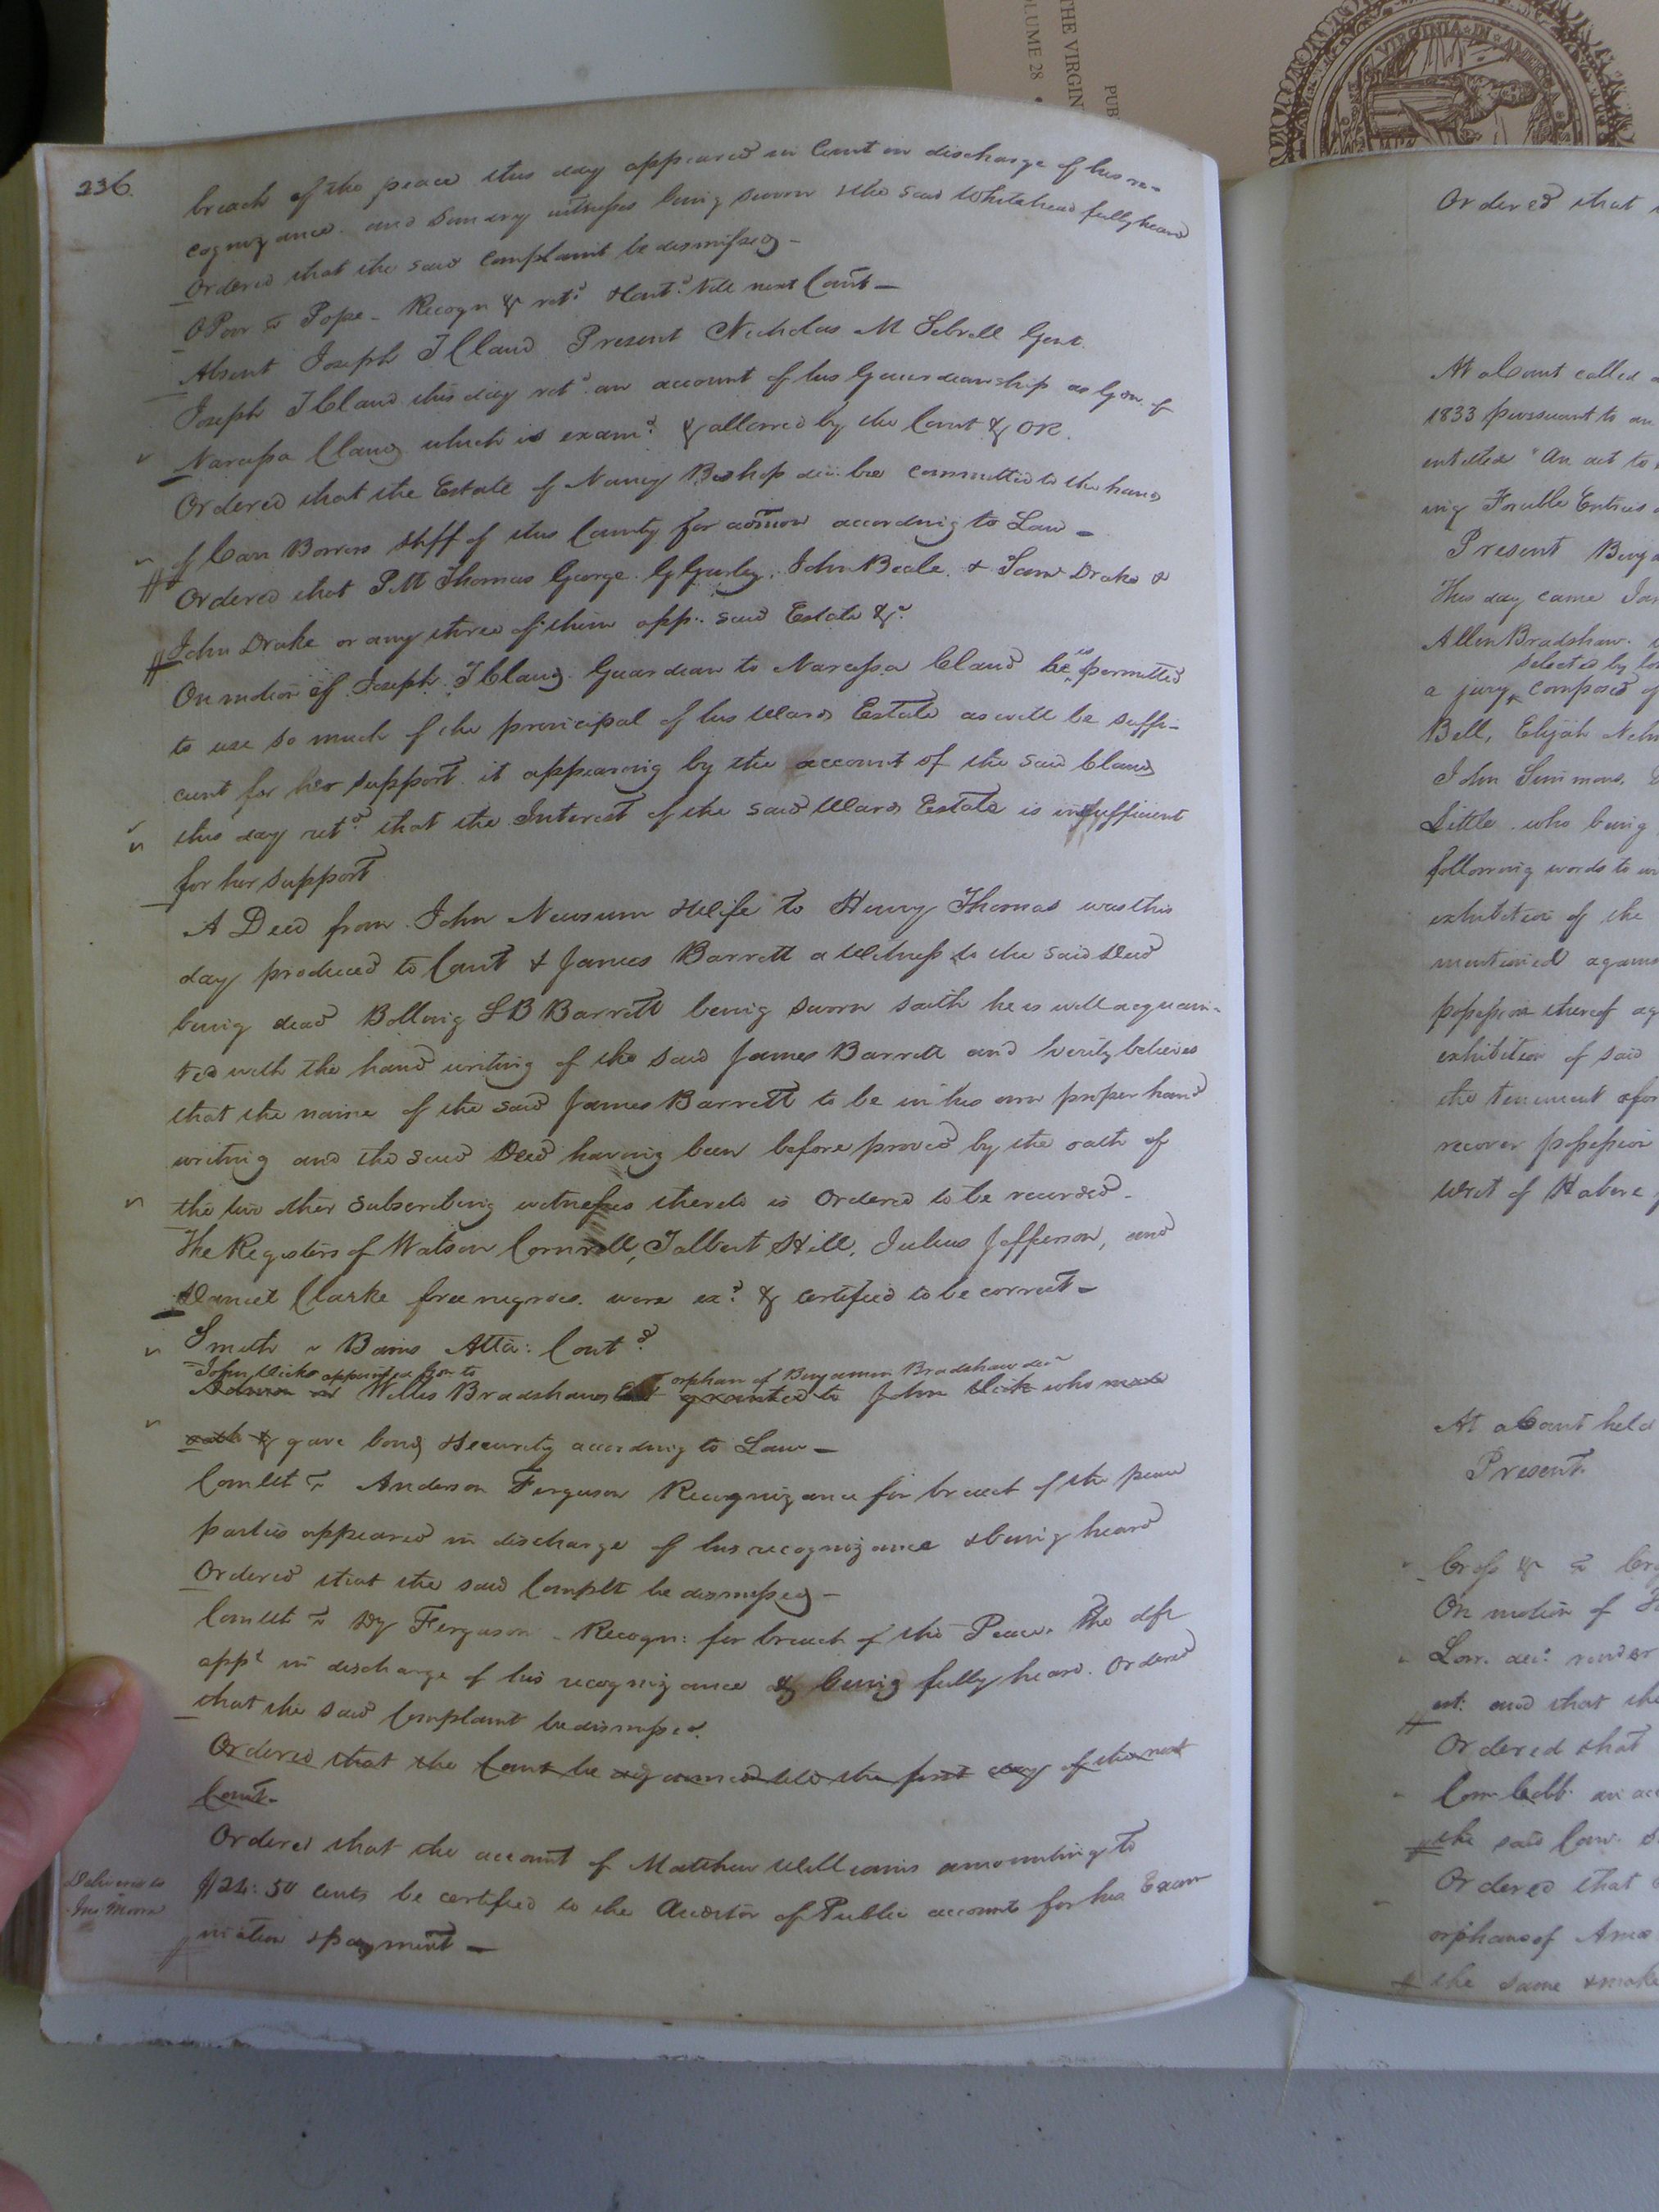 236.
breach of the peace this day appeared in Court in discharge of his re-
cognizance. and Sundry witnesses being sworn & the said Whitehead fully heard
Ordered that the said Complaint be dismissed -
O Poor vs Pope - Recogn & retd. & Contd. till next Court -
Absent Joseph T Claud Present Nicholas M Sebrell Gent.
Joseph T Claud this day retd. an account of his Guardianship as Gdn. of
Narcissa Claud which is examd. & allowed by the Court & OR.
Ordered that the Estate of Nancy Bishop dec. be committed to the hands
of Carr Bowers Shff of this County for admon according to Law -
Ordered that P. M Thomas George. G Gurley, John Beale. & Saml Drake &
John Drake or any three of them app. said Estate &c.
On motion of Joseph T Claud Guardian to Narcissa Claud he is permitted
to use so much of the principal of his Wards Estate as will be suffi-
cient for her support. it appearing by the account of the said Claud
this day retd. that the Interest of the said Wards Estate is insufficient
for her support
A Deed from John Newsum & Wife to Henry Thomas was this
day produced to Court & James Barrett a Witness to the said Deed
being dead Bolling S B Barrett being sworn saith he is well acquain-
ted with the hand writing of the said James Barrett and Verily believes
that the name of the said James Barrett to be in his own proper hand
writing and the said Deed having been before proved by the oath of
the two other subscribing witnesses thereto is Ordered to be recorded -
The Registers of Watson Cornwell, Talbert Hill, Julius Jefferson, and
Daniel Clarke free negroes. were exd. & certified to be correct -
Smith vs Bains Atta: Contd.
John Wicks appointed Gdn to orphan of Benjamin Bradshaw dec
Willis Bradshaw granted to John who made
oath & gave bond & security according to Law -
Comlth vs Anderson Ferguson Recognizance for breach of the peace
parties appeared in discharge of his recognizance & being heard
Ordered that the said Complt be dismissed -
Comlth vs Ferguson - Recogn: for breach of the Peace. The dft
appd in discharge of his recognizance & being fully heard. Ordered
that the said Complaint be dismissed.
Ordered that the Court be adjourned till the first day of the next
Court -
Ordered that the account of Matthew Williams amounting to
$24:50 cents be certified to the Auditor of Public accounts for his Exam
ination & payment -
Delivered to
Jno Moore
Ordered that
At a Court called
1833 pursuant to an
entitled "An act to
ing Forcible Entries
Present
This day came
Allen Bradshaw.
selected by
a jury composed of
Bell, Elijah
John Simmons,
Little. who being
following words to
exhibition of the
mentioned
possession thereof
exhibition of said
the tenement
recover possession
Writ of Habere
At a Court held
Present
On motion of
and that the
Ordered that
the said
Ordered that
orphans of
the same & make
THE VIRGIN
VOLUME 28
PUB
VIRGINIA